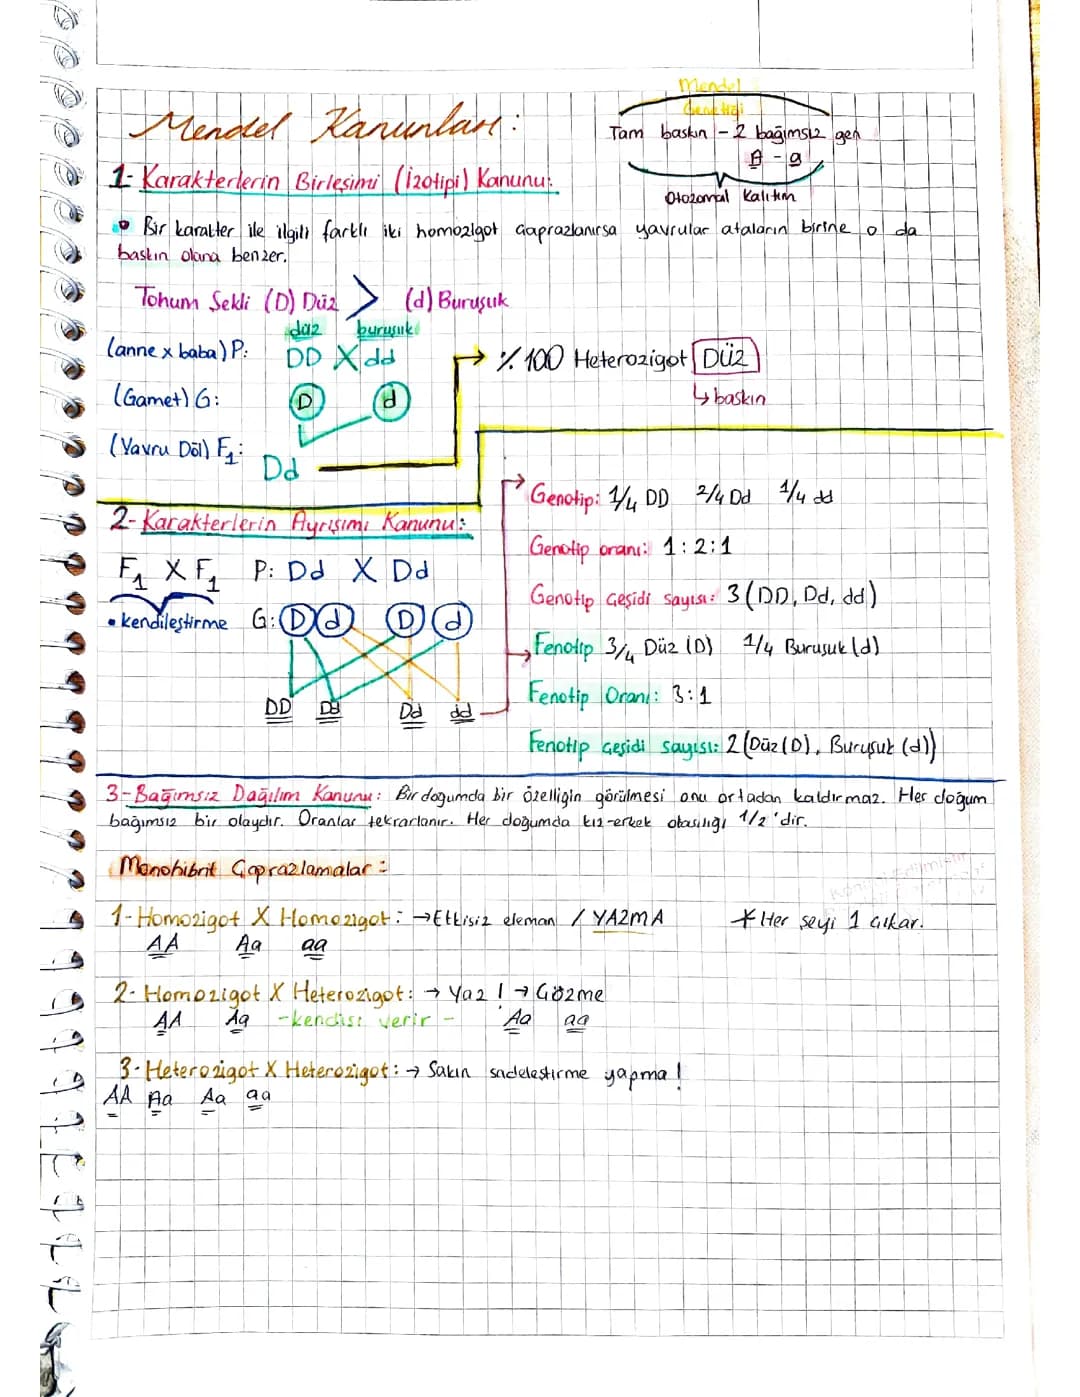 Mendel
Genetiği
Mendel Kanunları:
Tam baskın - 2 bağımsız gen
A - a
Otozomal Kalıtım
1- Karakterlerin Birleşimi (İzotipi) Kanunu:
Bir karakter ile ilgili farklı iki homozigot çaprazlanırsa yavrular ataların birine o da
baskın olana benzer.
Tohum Şekli (D) Düz > (d) Buruşuk
düz buruşuk
(anne x baba) P: DD X dd
→ % 100 Heterozigot Düz
↳ baskın
(Gamet) G: D d
(Yavru Döl) F1: Dd
2- Karakterlerin Ayrışımı Kanunu:
F1 X F1 P: Dd X Dd
• kendileştirme G: D d D d
DD Dd Dd dd
Genotip: 1/4 DD 2/4 Dd 1/4 dd
Genotip oranı: 1 : 2 : 1
Genotip çeşidi sayısı: 3 (DD, Dd, dd)
Fenotip 3/4 Düz (D) 1/4 Buruşuk (d)
Fenotip Oranı: 3:1
Fenotip çeşidi sayısı: 2 (Düz (D), Buruşuk (d))
3- Bağımsız Dağılım Kanunu: Bir doğumda bir özelliğin görülmesi onu ortadan kaldırmaz. Her doğum
bağımsız bir olaydır. Oranlar tekrarlanır. Her doğumda kız-erkek olasılığı 1/2'dir.
Monohibrit Çaprazlamalar:
1- Homozigot X Homozigot: → Etkisiz eleman / YAZMA * Her şeyi 1 çıkar.
AA Aa aa
2- Homozigot X Heterozigot: → Yaz! → Çözme
AA Aa -kendisi verir- Aa aa
3- Heterozigot X Heterozigot: → Sakın sadeleştirme yapma!
AA Aa Aa aa